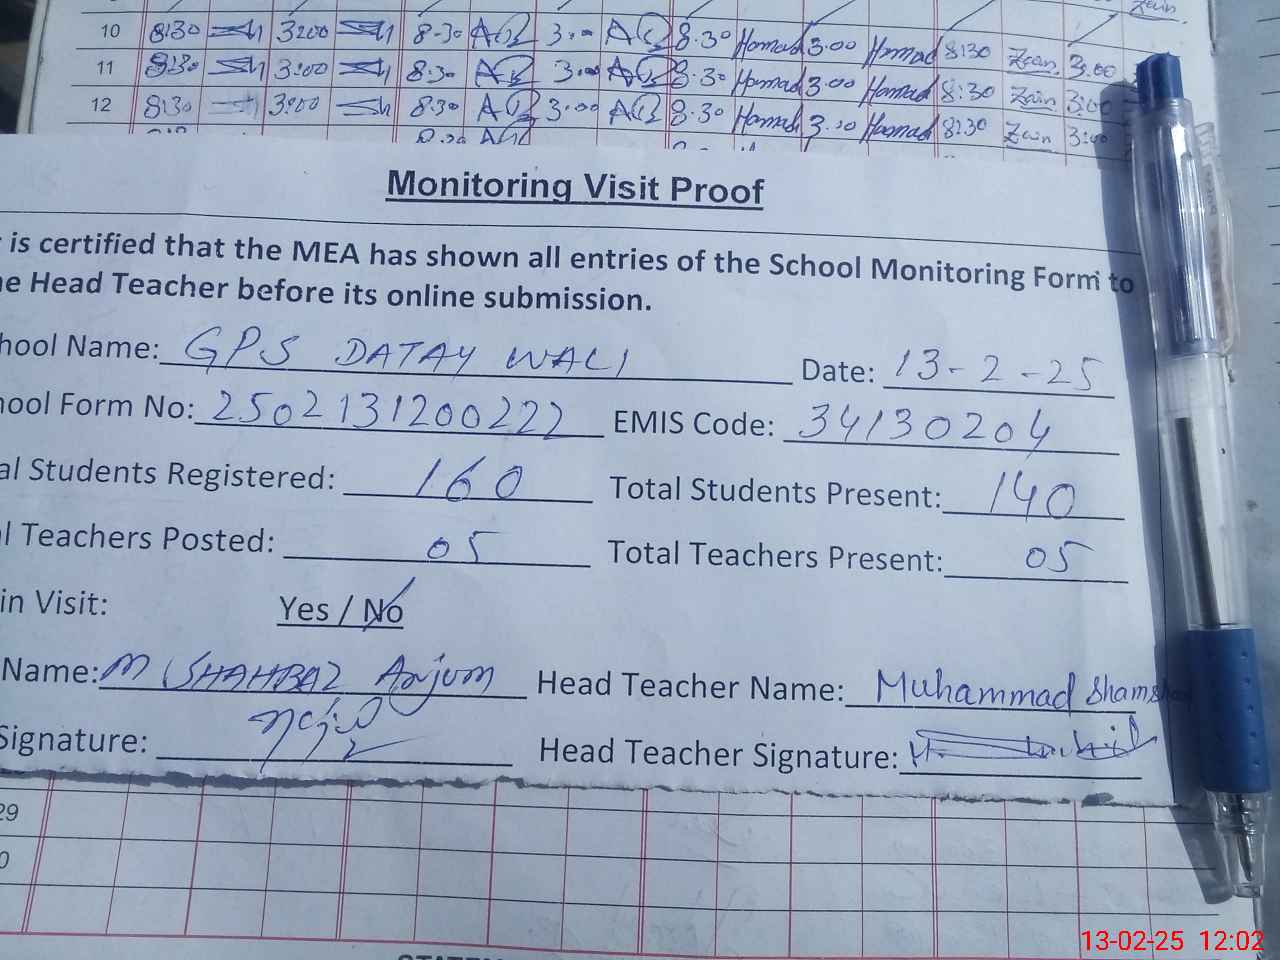 Zain
10 8:30 3:00 8:30 AQ 3:00 AQ 8:30 Hamad 3.00 Hamad 8:30 Zain 3:00
11 8:30 3:00 8:30 AQ 3:00 AQ 8:30 Hamad 3.00 Hamad 8:30 Zain 3:00
12 8:30 3:00 8:30 AQ 3:00 AQ 8:30 Hamad 3.00 Hamad 8:30 Zain 3:00
Monitoring Visit Proof
is certified that the MEA has shown all entries of the School Monitoring Form to
e Head Teacher before its online submission.
hool Name: GPS DATAY WALI Date: 13-2-25
ool Form No: 2502131200222 EMIS Code: 34130204
al Students Registered: 160 Total Students Present: 140
l Teachers Posted: 05 Total Teachers Present: 05
in Visit: Yes / No
Name: M SHAHBAZ Anjum Head Teacher Name: Muhammad Sham
Signature: Head Teacher Signature:
29
0
13-02-25 12:02